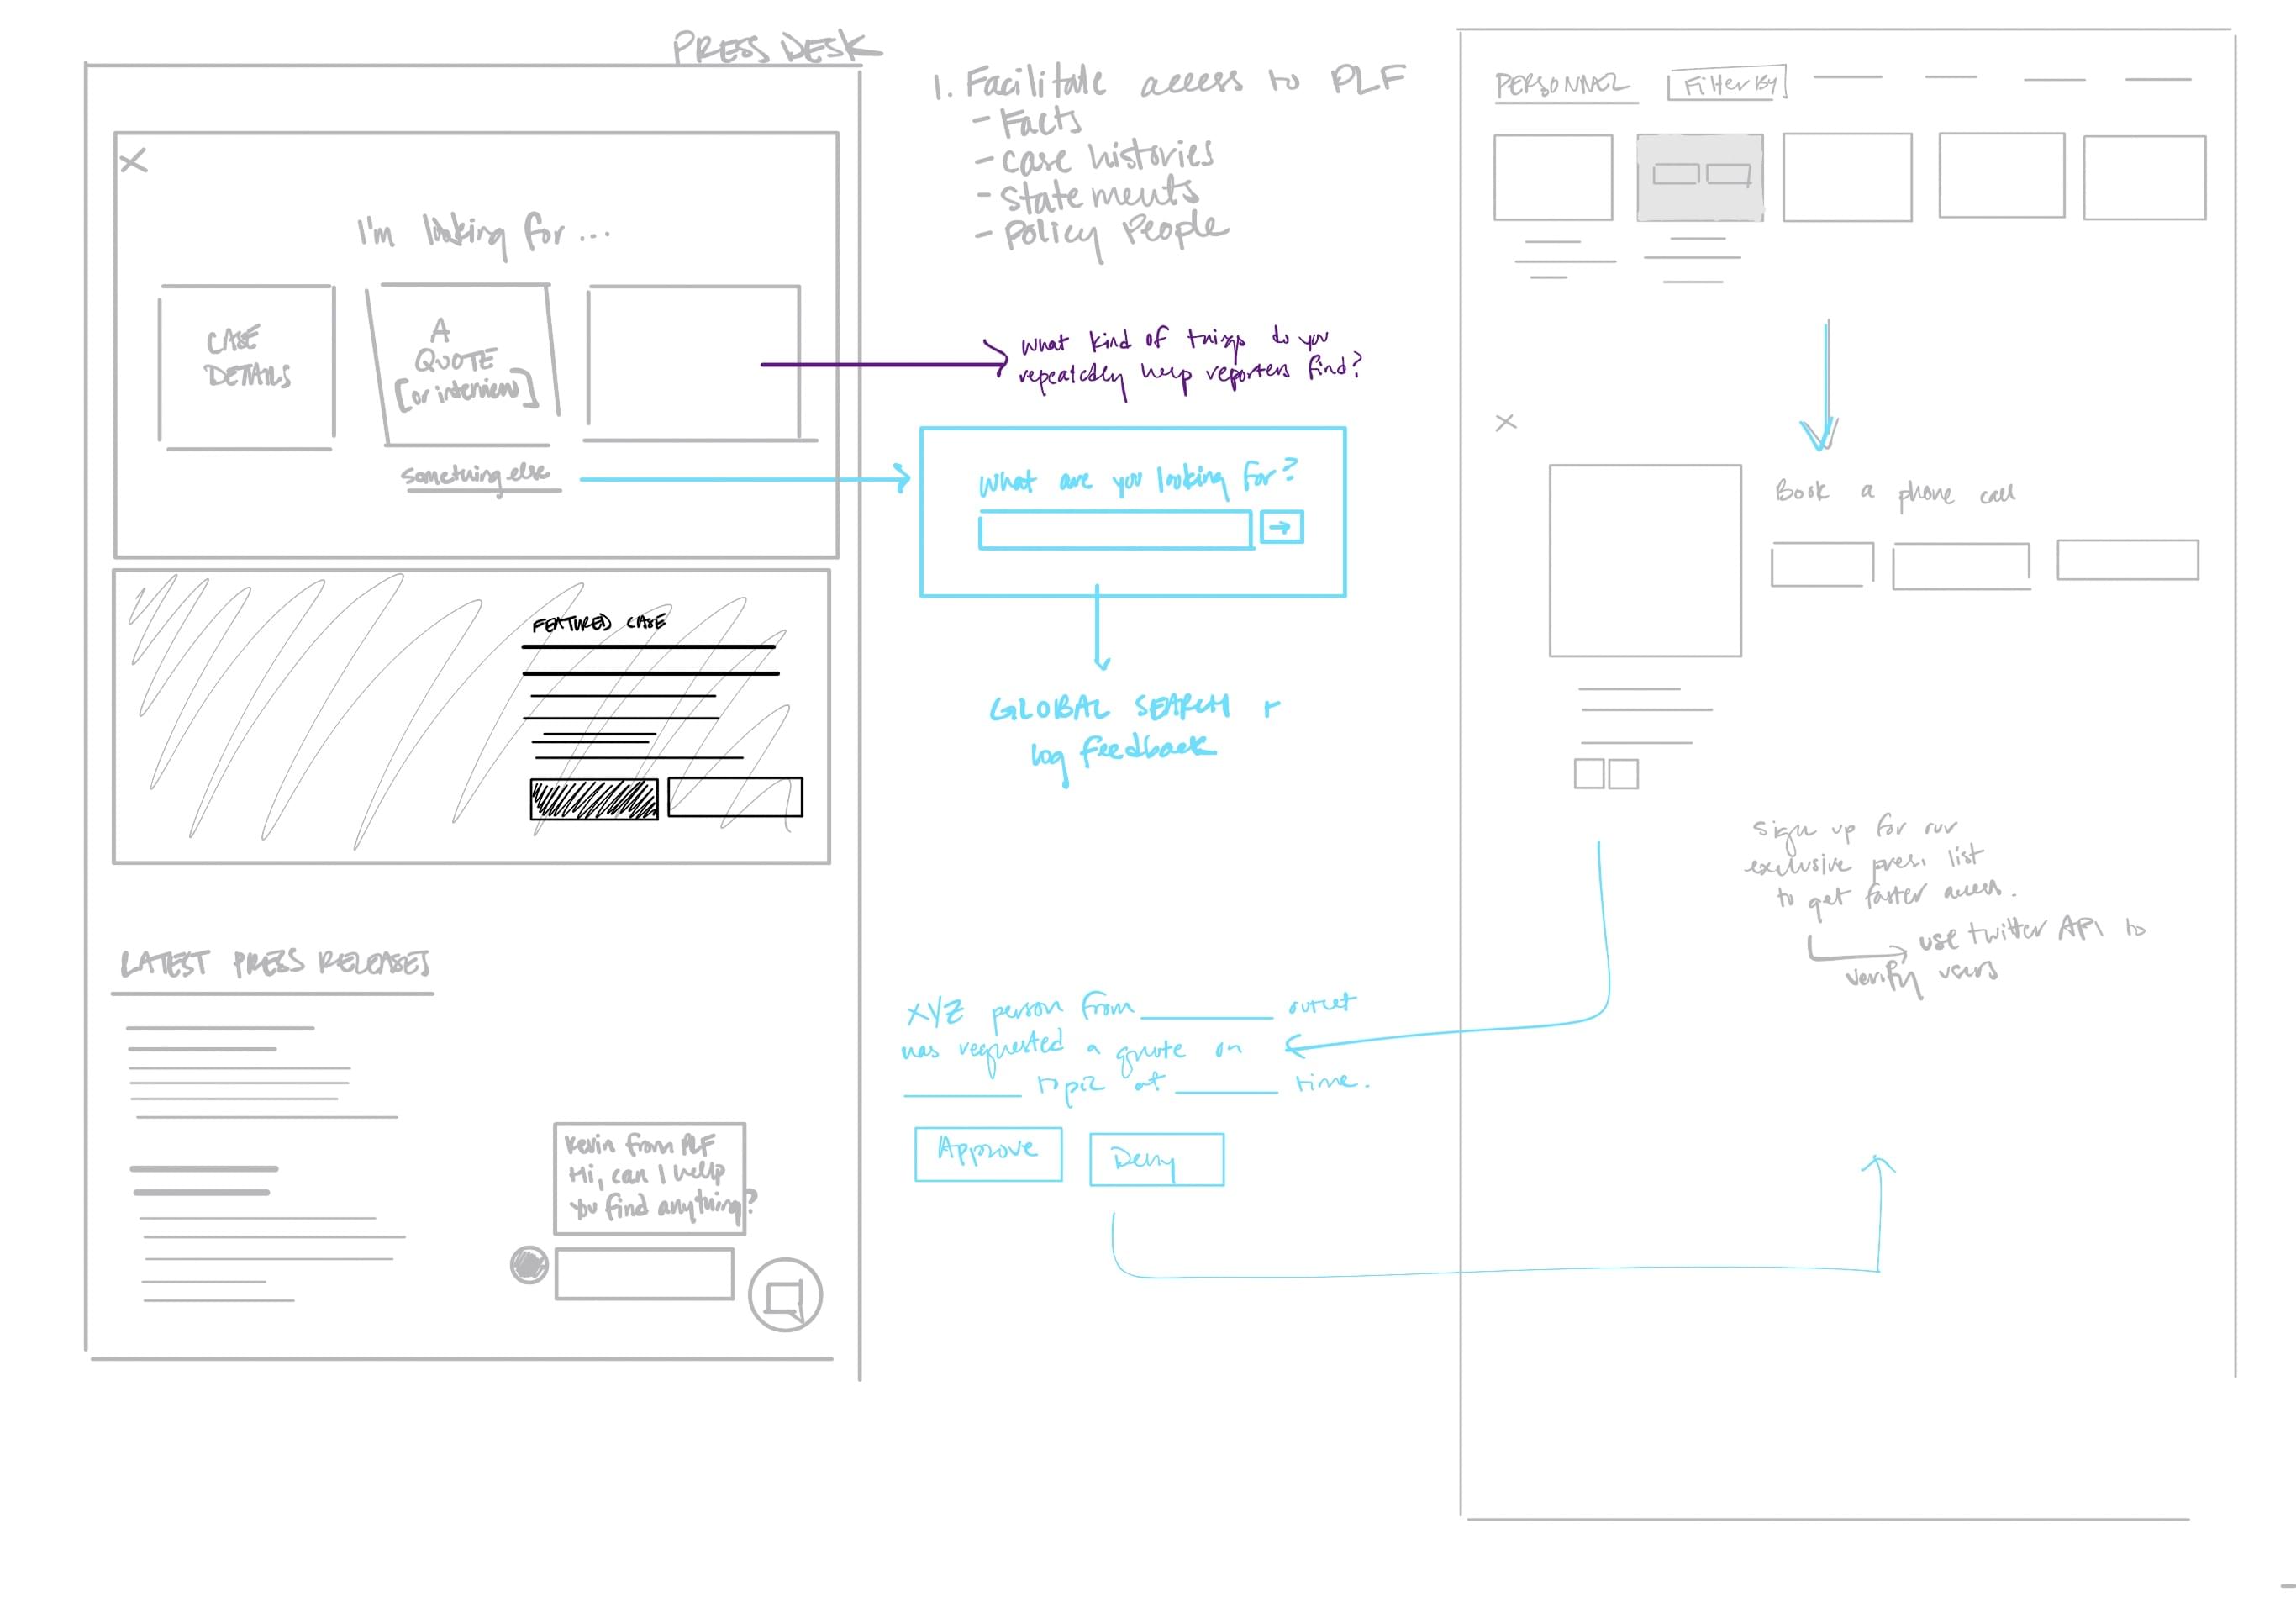 PRESS DESK
I'm looking for ...
CASE
DETAILS
A
QUOTE
[or interview]
something else
FEATURED CASE
LATEST PRESS RELEASES
Kevin from PLF
Hi, can I help
you find anything?
1. Facilitate access to PLF
- Facts
- case histories
- statements
- Policy People
what kind of things do you
repeatedly help reporters find?
what are you looking for?
GLOBAL SEARCH +
log feedback
XYZ person from ________ outlet
has requested a quote on
________ topic at ________ time.
Approve
Deny
PERSONNEL
Filter By
Book a phone call
sign up for our
exclusive press list
to get faster access.
use twitter API to
verify users